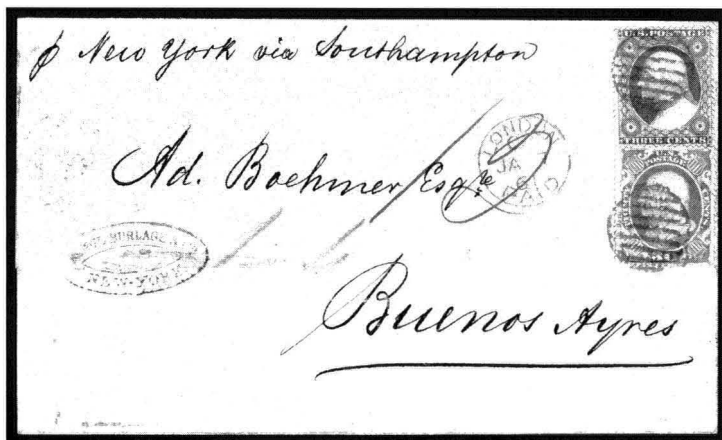 p New York via Southampton
Ad. Boehmer Esqre
Buenos Ayres
LONDON
JA
6
PAID
BURLAGE
NEW-YORK
U.S. POSTAGE
THREE CENTS
POSTAGE